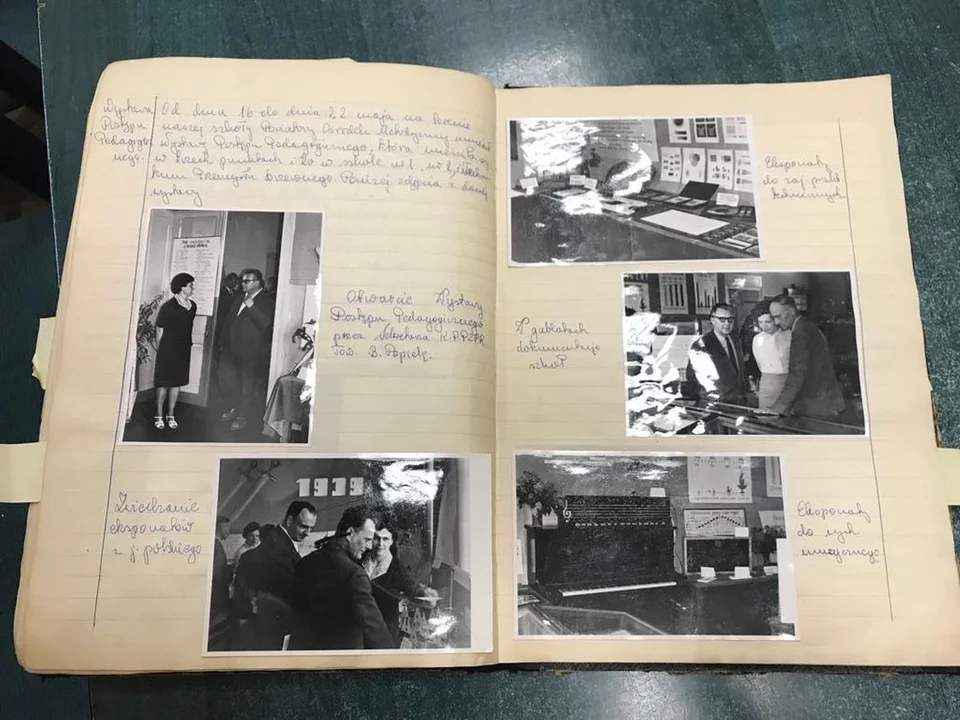 Wystawa
Postępu
Pedagogicz-
nego.
Od dnia 16 do dnia 22 maja na terenie
naszej szkoły Powiatowy Ośrodek Metodyczny urządził
wystawę Postępu Pedagogicznego, która mieściła się
w trzech punktach i to w szkole nr 1, nr 2, i Techni-
kum Przemysłu Drzewnego. Poniżej zdjęcia z
wystawy.
Otwarcie Wystawy
Postępu Pedagogicznego
przez Sekretarza K.P.PZPR
Tow. B.
Zwiedzanie
eksponatów
z j. polskiego
1939
Eksponaty
do zaj. prakt.
technicznych
W gablotach
dokumentacja
szkół
Eksponaty
do wych.
muzycznego